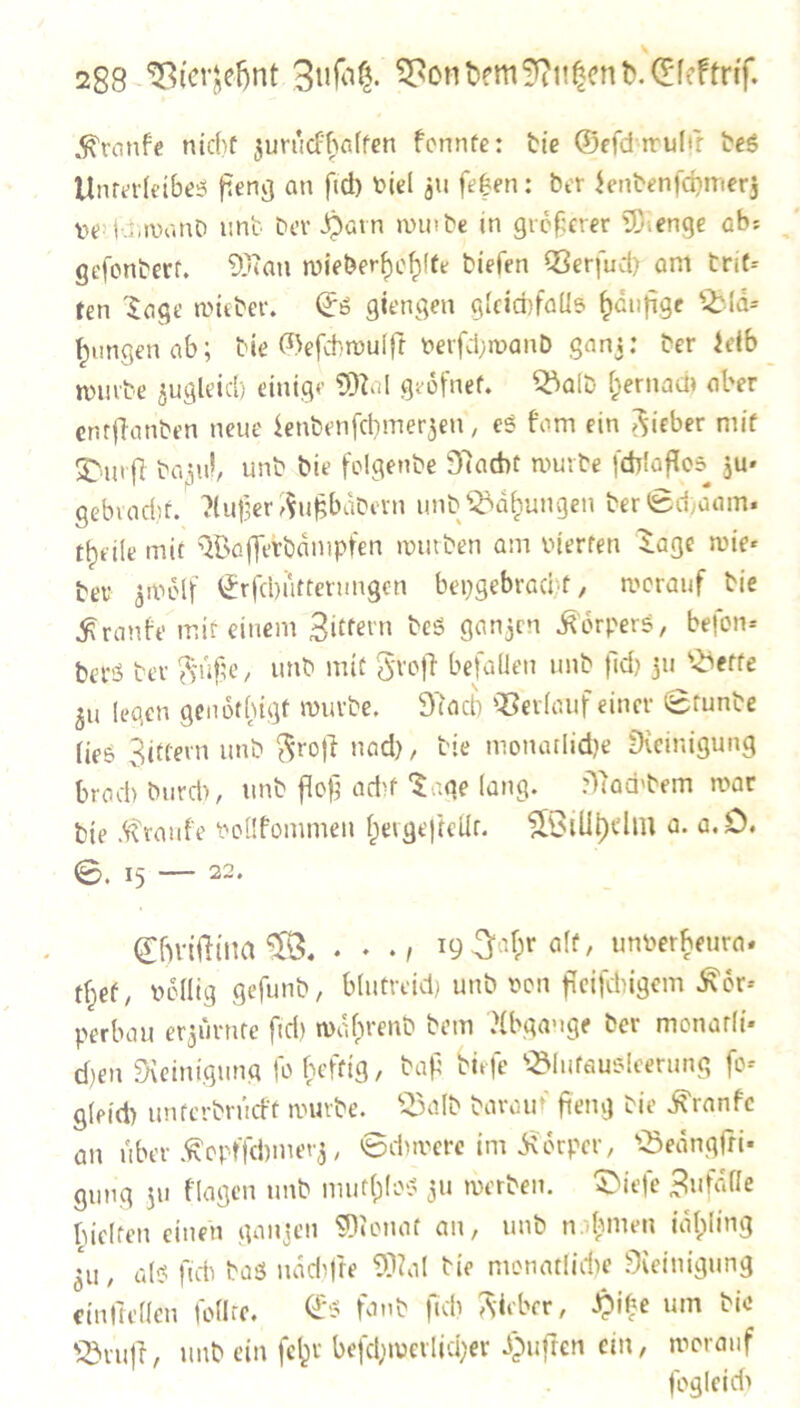 288 Vierzehnt Zusatz. Von dem Nutzen d. Elektriz.
Kranke nicht zurückhalten konnte: die Geschwulst des
Unterleibes fieng an sich viel zu setzen: der Lendenschmerz
verschwand und der Harn wurde in größerer Menge ab-
gesondert. Man wiederhohlte diesen Versuch am drit-
ten Tage wieder. Es giengen gleichfalls häufige Blä-
hungen ab; die Geschwulst verschwand ganz: der Leib
wurde zugleich einige Mal geöfnet. Bald hernach aber
entstanden neue Lendenschmerzen, es kam ein Fieber mit
Durst dazu, und die folgende Nacht wurde schlaflos zu-
gebracht. Außer Fußbädern und Bähungen der Schaam-
theile mit Wasserdämpfen wurden am vierten Tage wie-
der zwölf Erschütterungen beygebracht, worauf die
Kranke mit einem Zittern des ganzen Körpers, beson-
ders der Füße, und mit Frost befallen und sich zu Bette
zu legen genöthigt wurde. Nach Verlauf einer Stunde
lies Zittern und Frost nach, die monatliche Reinigung
brach durch, und floß acht Tage lang. Nachdem war
die Kranke vollkommen hergestellt. Willhelm a. a. O.
S. 15 — 22.
Christina W. . . ., 19 Jahr alt, unverheura-
thet, völlig gesund, blutreich und von fleischigem Kör-
perbau erzürnte sich während dem Abgange der monatli-
chen Reinigung so heftig, daß diese Blutausleerung so-
gleich unterdrückt wurde. Bald darauf fieng die Kranke
an über Kopfschmerz, Schwere im Körper, Beängsti-
gung zu klagen und muthlos zu werden. Diese Zufälle
hielten einen ganzen Monat an, und nahmen jähling
zu, als sich das nächste Mal die monatliche Reinigung
einstellen sollte. Es fand sich Fieber, Hitze um die
Brust, und ein sehr beschwerlicher Husten ein, worauf
sogleich